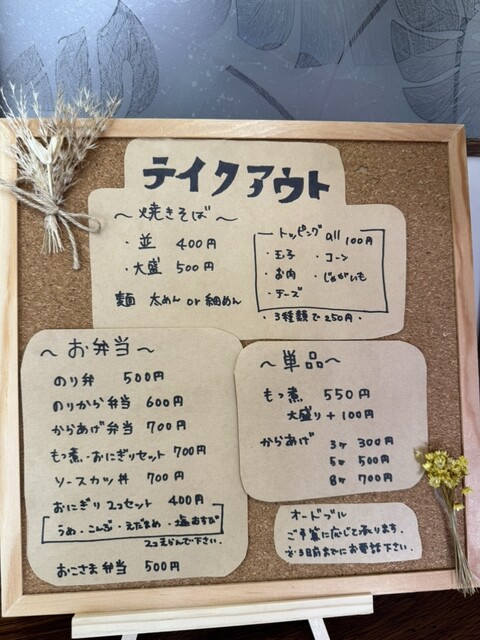 テイクアウト
～焼きそば～
・並 400円
・大盛 500円
麺 太めん or 細めん
トッピング all 100円
・玉子 ・コーン
・お肉 ・じゃがいも
・チーズ
・3種類で250円・
～お弁当～
のり弁 500円
のりから弁当 600円
からあげ弁当 700円
もつ煮・おにぎりセット 700円
ソースカツ丼 700円
おにぎり2コセット 400円
うめ・こんぶ・えだまめ・塩むすび
2コえらんで下さい。
おこさま弁当 500円
～単品～
もつ煮 550円
大盛り+100円
からあげ 3ヶ 300円
5ヶ 500円
8ヶ 700円
オードブル
ご予算に応じて承ります。
※3日前までにお電話下さい。